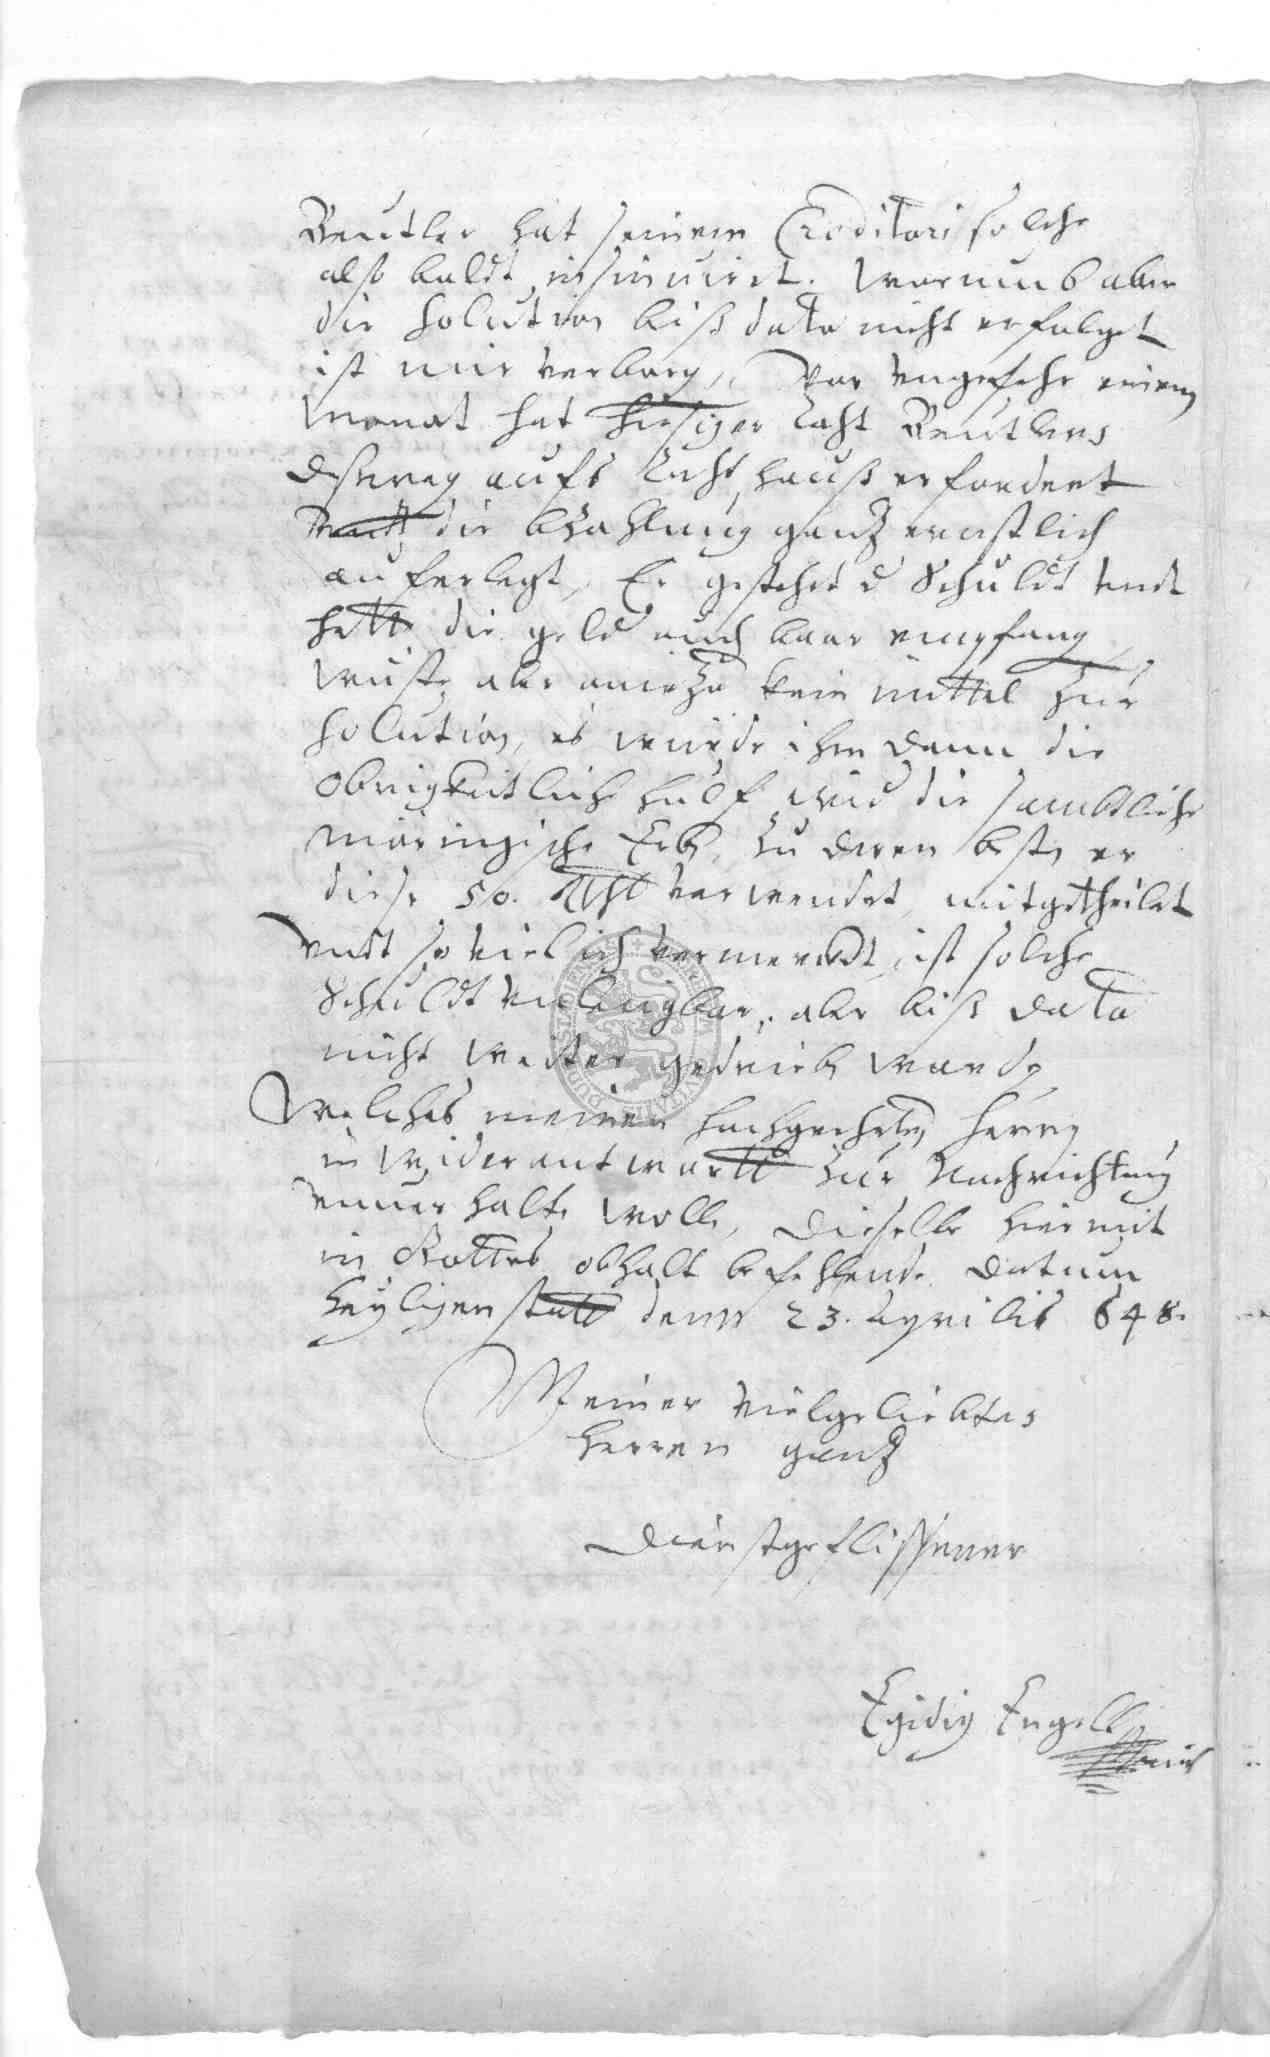 Beutler hat seinem Creditori solche
also baldt insinuiret. Warumb aber
die Solution biß dato nicht erfolget
ist mir verborg, Vor ungefehr einem
Monat hat hiesiger Raht Beutlern
deßweg aufs Rahthauß erfordert
undt die bezahlung ganz ernstlich
auferlegt, Er gestehet d Schuldt undt
hette die geld auch baar empfang,
wuste aber anietzo kein mittel zur
Solution, es würde ihm dann die
Obrigkeitliche hülf wid die sambtliche
Erb, zu deren beste er
diese 50. Rthl verwendet, mitgetheilet
undt so viel ich vermerckt, ist solche
Schuldt unleugbar, aber biß dato
nicht weiter getrieb word,
Welches meinen hochgeehrten Herrn
in Widerantwortt zur Nachrichtung
unuerhalte wolle, Dieselbe hiermit
in Gottes obhalt befehlende. Datum
Heyligenstatt denn 23. Aprilis 648.
Meiner vielgeliebten
Herren ganz
Dienstgeflissener
Egidig Engell